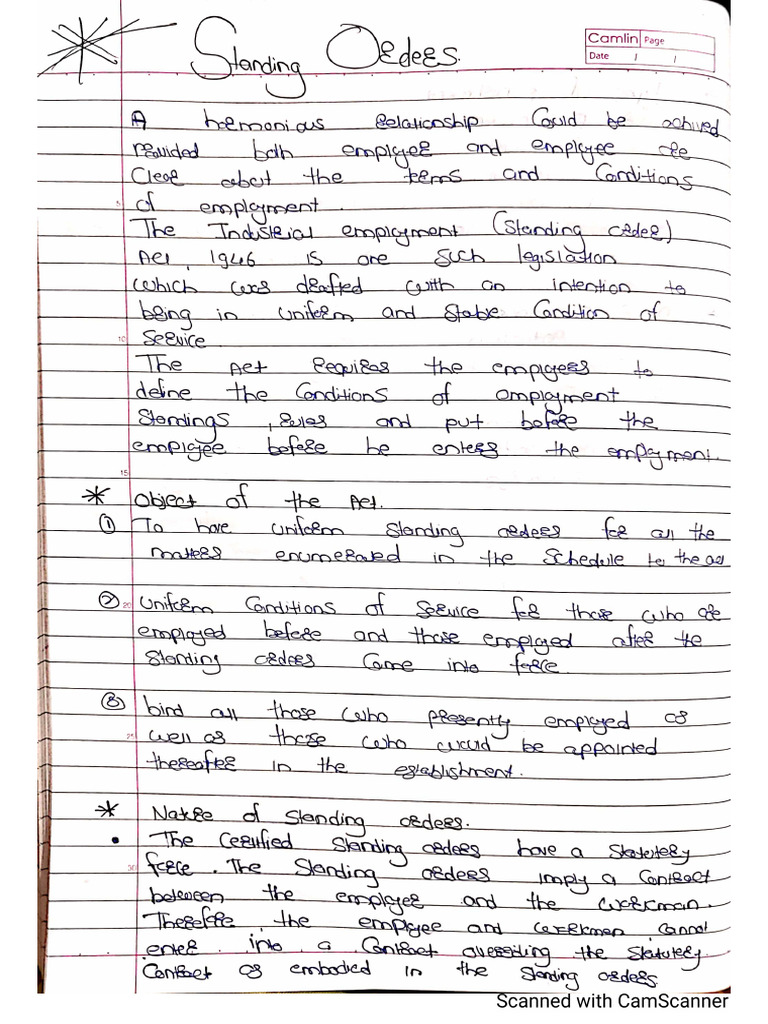 Standing Orders.
Camlin Page
Date / /
A harmonious Relationship Could be achived
revuided both employer and employee are
Clear about the terms and Conditions
of employment.
The Industrial employment (Standing order)
Act, 1946 is one such legislation
which was drafted with an intention to
bring in uniform and stable Condition of
Service.
The Act Requires the employers to
define the Conditions of employment
Standings, rules and put before the
employee before he enters the employment.
* Object of the Act.
① To have uniform Standing orders for all the
matters enumerated in the Schedule to the act
② uniform Conditions of Service for those who are
employed before and those employed after the
Standing orders Came into force
③ bind all those who presently employed as
well as those who would be appointed
thereafter in the establishment.
* Nature of Standing orders.
• The Certified Standing orders have a Statutory
force. The Standing orders imply a Contract
between the employer and the workman.
Therefore, the employer and workman Cannot
enter into a Contract overriding the Statutory
Contract as embodied in the Standing orders.
Scanned with CamScanner